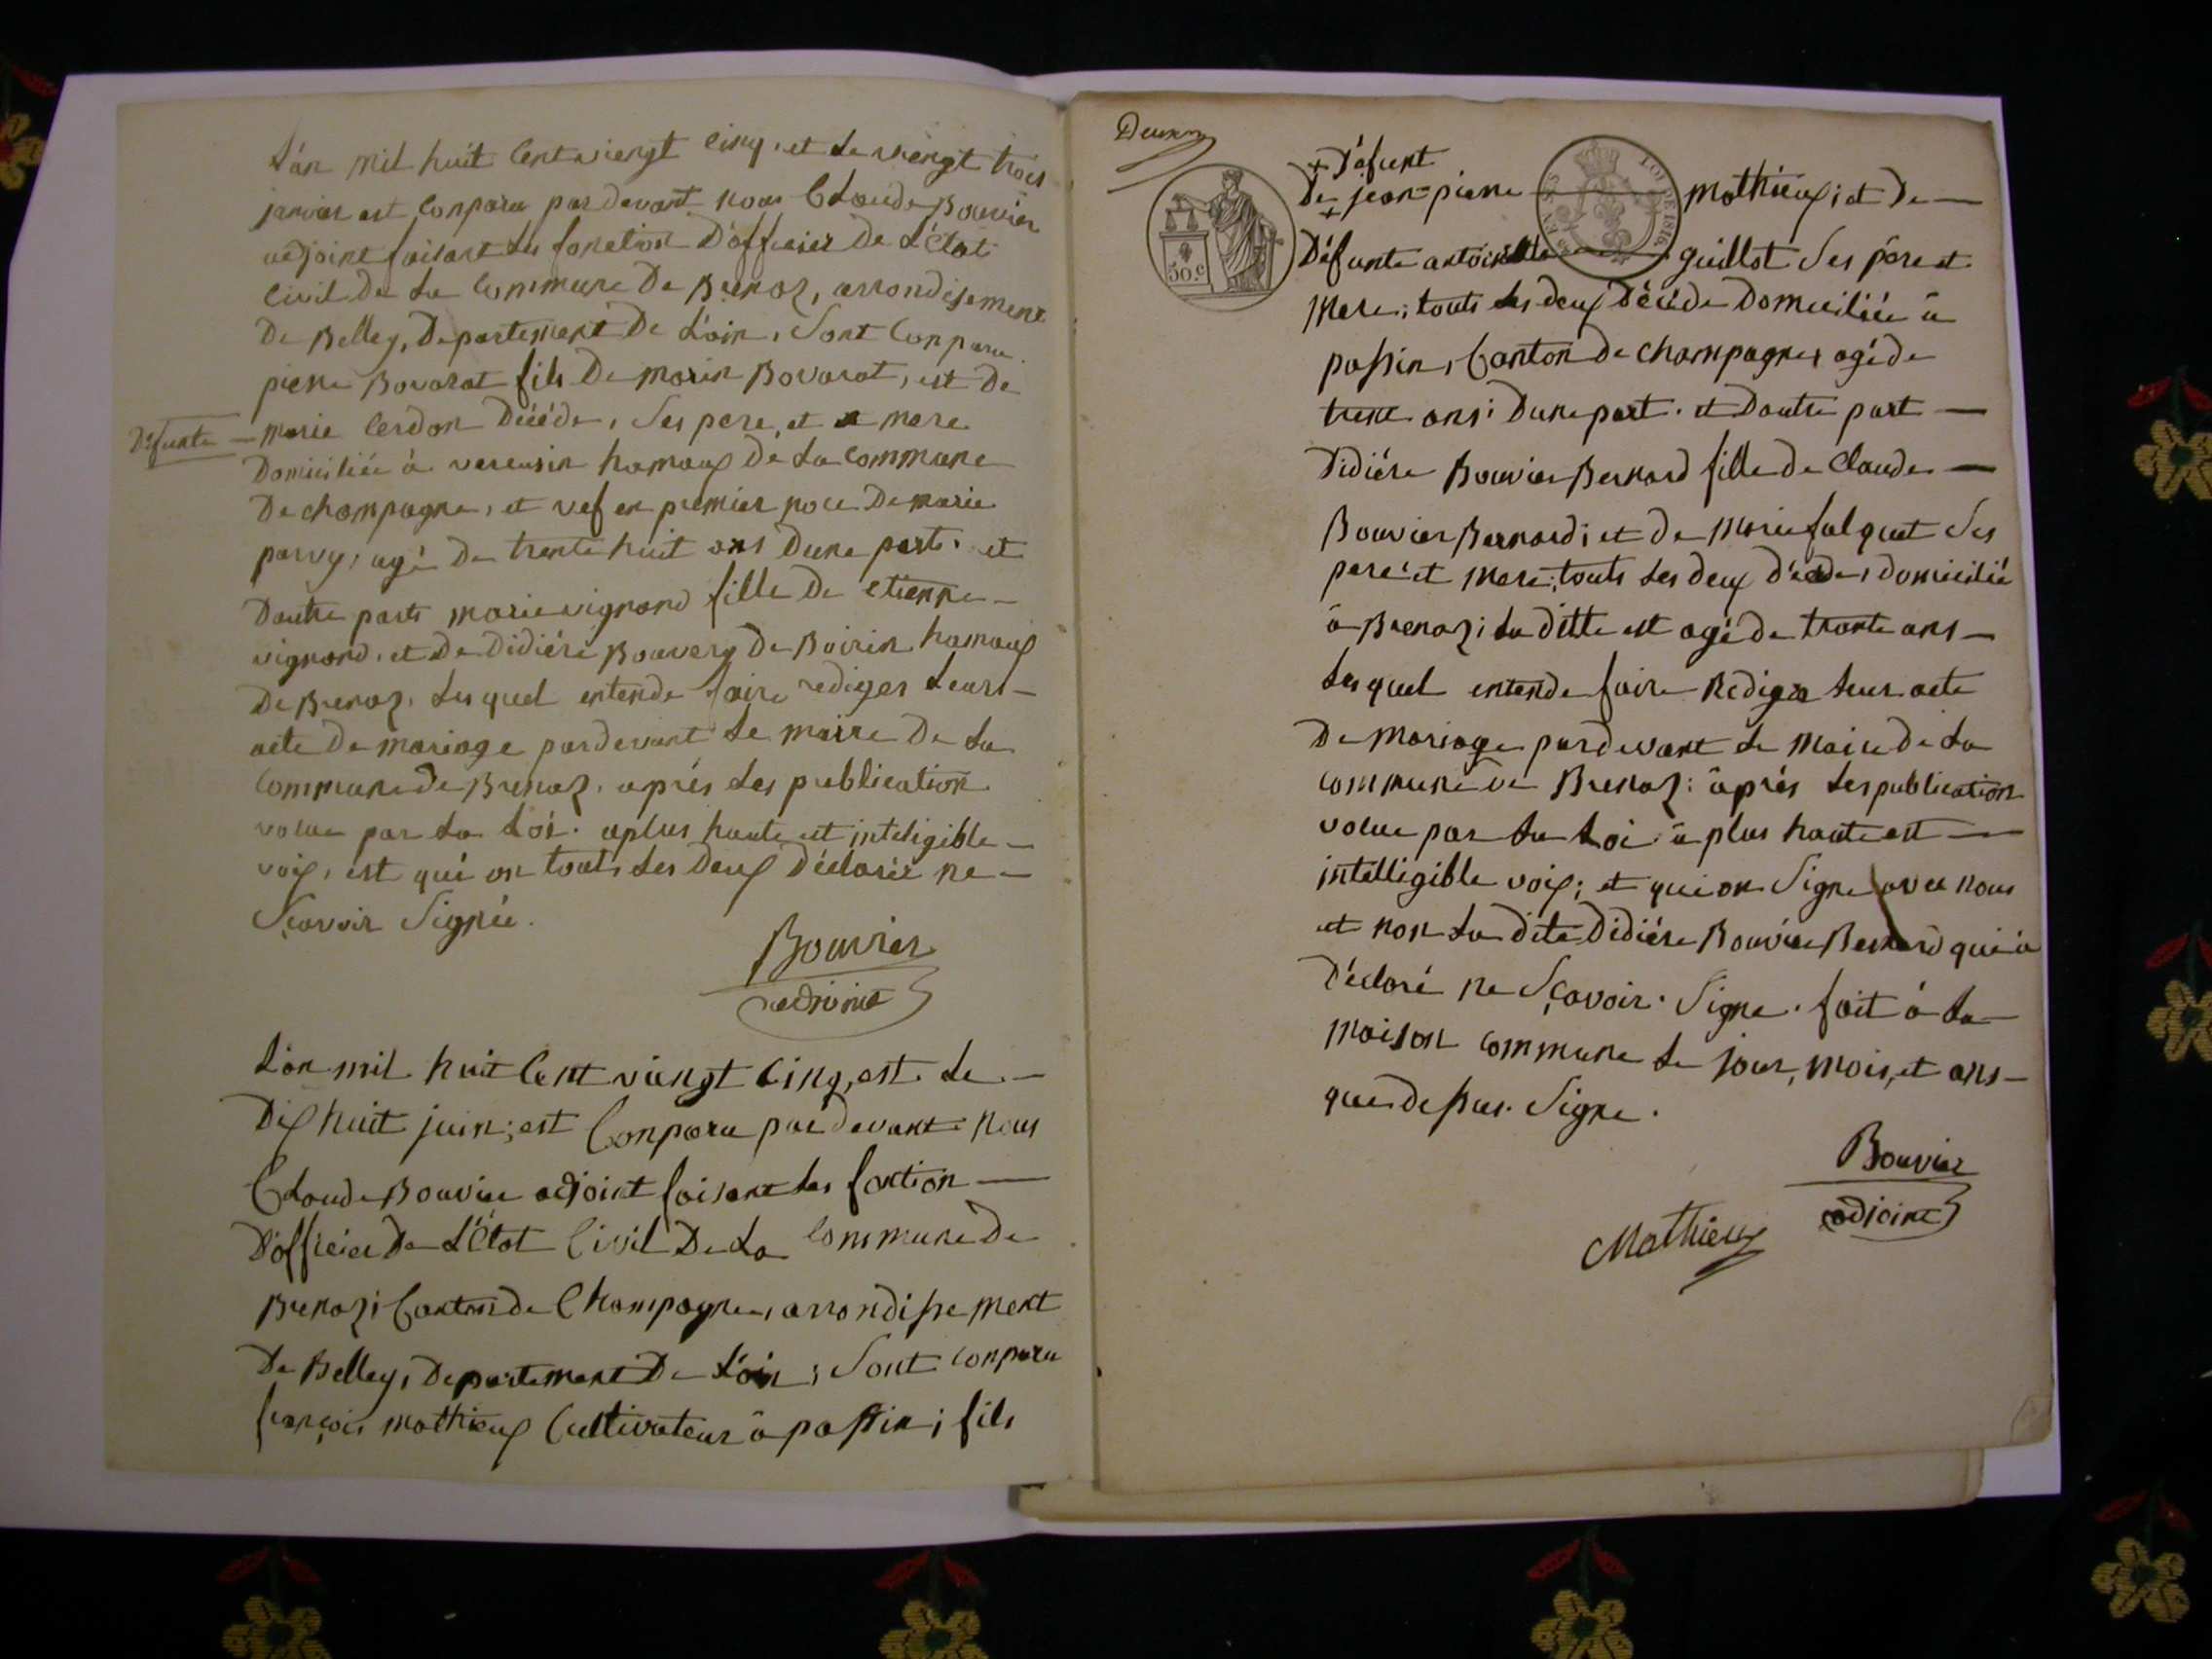 L'an mil huit Cent viengt cinq, et le viengt trois
janvier est Conparu par devant nous Claude Bouvier
adjoint faisant les fonction D'officier De L'État
Civil De La Commune De Brenaz, arrondisement
De Belley, Departement De L'ain, Sont Conparu
pierre Bovarat fils De marin Bovarat, est De
Défunte — marie Cerdon Décéde, Ses pere, et mere
Domiciliée à vereusin hamaux De La Commune
De champagne, et vef en premier noce De marie
parvy, agé De trente huit ans Dune part. et
Dautre parts marie vignond fille De etienne —
vignond, et De Didiére Bouvery De Boirin hamaux
De Brenaz. Les quel entende faire rediger Leurs —
acte De mariage pardevant Le maire De La
Commune De Brenaz, aprés Les publication
voulue par La Loi. aplus haute et inteligible —
voix, est qui on touts Les Deux Déclarée ne —
Sçavoir Signée.
Bouvier
adjoint
L'an mil huit Cent viengt Cinq, est Le —
Dix huit juin; est Conparu par devant nous
Claude Bouvier adjoint faisant Les fontion —
D'officier De L'État Civil De La Commune De
Brenaz; Canton de Champagne, arrondissement
De Belley, Departement De L'ain; Sont Conparu
françois mathieux Cultivateur à passin; fils
Deux
+ Défunt
De + jean=pierre mathieux; et De —
LOI DE 1816.
50.c
Défunte antoinette guillot Ses pére et
Mere; touts Les deux Décéde Domiciliée à
passin, Canton de Champagne, agé de
trent ans; Dune part. et Dautre part —
Didiére Bouvier Bernard fille de Claude —
Bouvier Bernard; et De Marie falquet Ses
pere et Mere; touts Les deux décéde, domicilié
à Brenaz; La ditte est agé de trante ans —
Les quel entende faire Rediger Leur acte
De Mariage pardevant Le Maire De La
Commune De Brenaz; aprés Les publication
volue par La Loi à plus haute est —
intelligible voix; et qui on Signe avec nous
et non La dite Didiére Bouvier Bernard qui à
Déclaré ne Sçavoir Signe. fait à La —
Maison Commune Le jour, mois, et ans —
que dessus. Signe.
Bouvier
adjoint
Mathieux